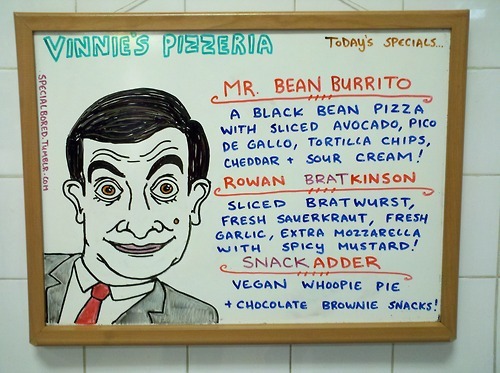 VINNIE'S PIZZERIA
TODAY'S SPECIALS...
SPECIALBORED.TUMBLR.COM
MR. BEAN BURRITO
A BLACK BEAN PIZZA
WITH SLICED AVOCADO, PICO
DE GALLO, TORTILLA CHIPS,
CHEDDAR + SOUR CREAM!
ROWAN BRATKINSON
SLICED BRATWURST,
FRESH SAUERKRAUT, FRESH
GARLIC, EXTRA MOZZARELLA
WITH SPICY MUSTARD!
SNACKADDER
VEGAN WHOOPIE PIE
+ CHOCOLATE BROWNIE SNACKS!